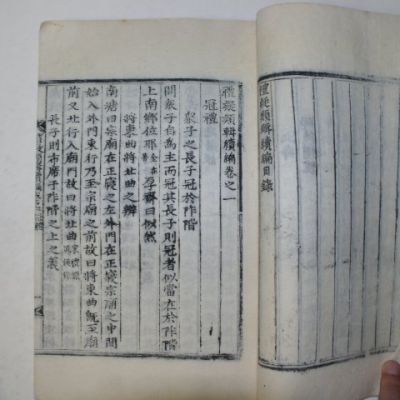 禮疑類輯續編目錄
禮疑類輯續編卷之一
冠禮
衆子之長子冠於阼階
問衆子自爲主而冠其長子則冠者似當在於阼階
上南鄉位耶厚齋曰似然
將東曲將北曲之辨
南塘曰宗廟在正寢之左外門在正寢宗廟之中間
始入外門東行乃至宗廟之前故曰將東曲旣至廟
前又北行入廟門故曰將北曲
長子則布席于阼階之上之義